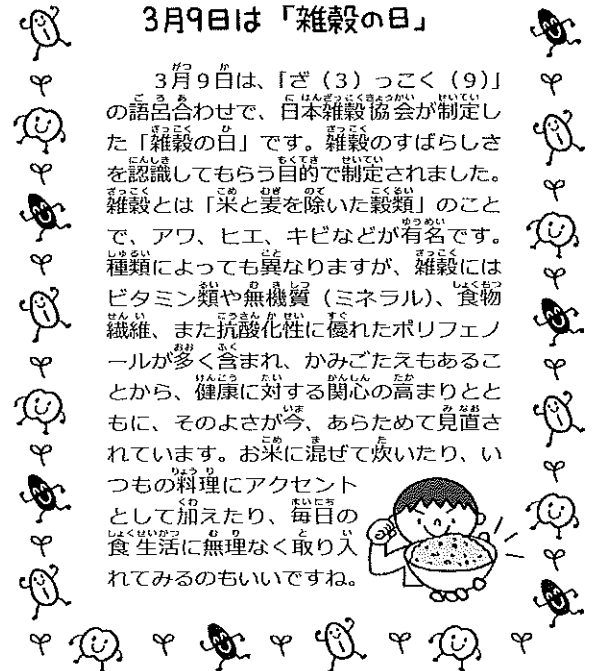 3月9日は「雑穀の日」
3月9日は、「ざ(3)っこく(9)」
の語呂合わせで、日本雑穀協会が制定し
た「雑穀の日」です。雑穀のすばらしさ
を認識してもらう目的で制定されました。
雑穀とは「米と麦を除いた穀類」のこと
で、アワ、ヒエ、キビなどが有名です。
種類によっても異なりますが、雑穀には
ビタミン類や無機質(ミネラル)、食物
繊維、また抗酸化性に優れたポリフェノ
ールが多く含まれ、かみごたえもあるこ
とから、健康に対する関心の高まりとと
もに、そのよさが今、あらためて見直さ
れています。お米に混ぜて炊いたり、い
つもの料理にアクセント
として加えたり、毎日の
食生活に無理なく取り入
れてみるのもいいですね。